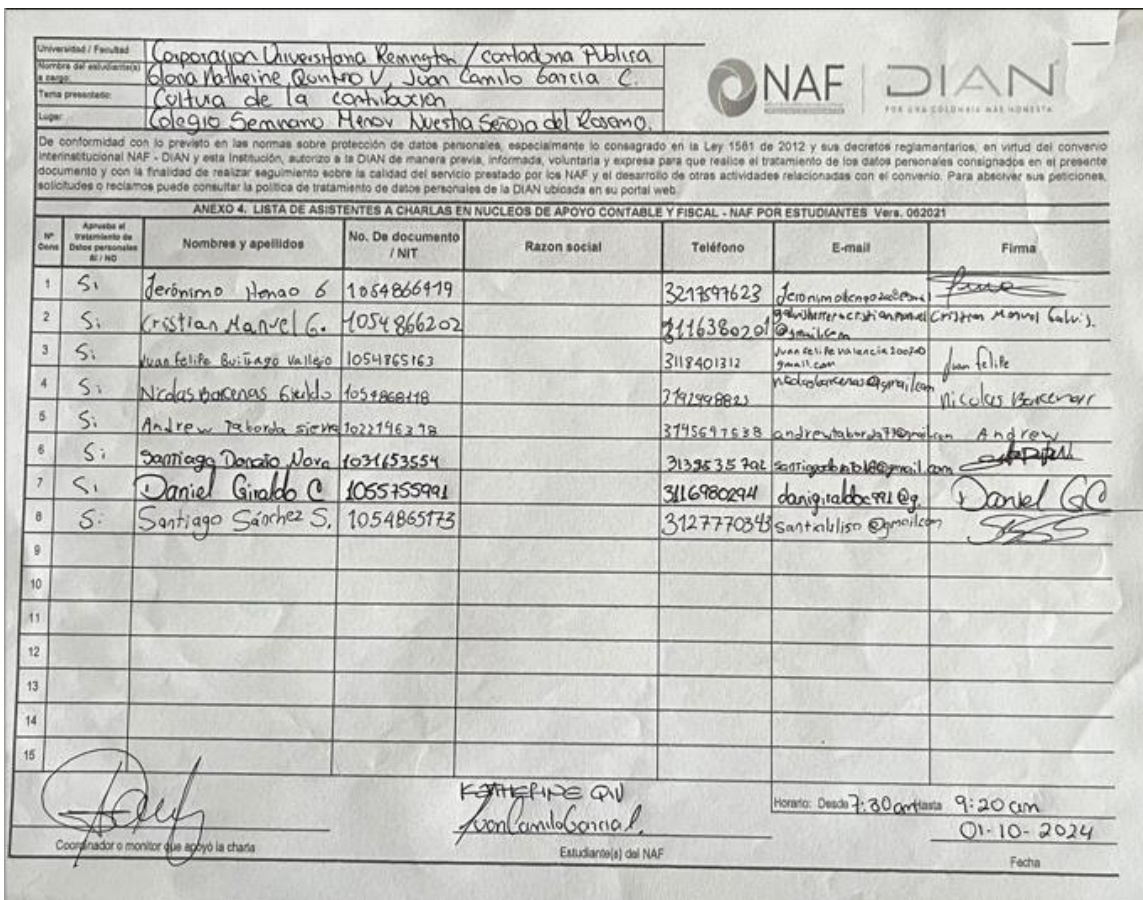 Universidad / Facultad Corporacion Universitaria Remington / contaduria Publica
Nombre del estudiante(s) a cargo: Katherine Quintero V, Juan Camilo Garcia C.
Tema presentado: Cultura de la contribución
Lugar: Colegio Seminario Menor Nuestra Señora del Rosario.
NAF DIAN
POR UNA COLOMBIA MÁS HONESTA
De conformidad con lo previsto en las normas sobre protección de datos personales, especialmente lo consagrado en la Ley 1581 de 2012 y sus decretos reglamentarios, en virtud del convenio
interinstitucional NAF - DIAN y esta Institución, autorizo a la DIAN de manera previa, informada, voluntaria y expresa para que realice el tratamiento de los datos personales consignados en el presente
documento y con la finalidad de realizar seguimiento sobre la calidad del servicio prestado por los NAF y el desarrollo de otras actividades relacionadas con el convenio. Para absolver sus peticiones,
solicitudes o reclamos puede consultar la política de tratamiento de datos personales de la DIAN ubicada en su portal web.
ANEXO 4. LISTA DE ASISTENTES A CHARLAS EN NUCLEOS DE APOYO CONTABLE Y FISCAL - NAF POR ESTUDIANTES Vers. 062021
Nº Cons Aprueba el tratamiento de Datos personales SI / NO Nombres y apellidos No. De documento / NIT Razon social Teléfono E-mail Firma
1 Si Jerónimo Henao G 1054866979 3217597623
2 Si Cristian Manuel G. 1054866202 3116380201 @gmail.com Cristian Manuel Galvis.
3 Si Juan Felipe Buitrago Vallejo 1054865163 3118401312 gmail.com Juan felipe
4 Si Nicolas Barcenas Giraldo 1054868118 nicolasbarcenas@gmail.com Nicolas Barcenas
5 Si Andrew Taborda sierra 1022146378 andrewtaborda71@gmail.com Andrew
6 Si Santiago Donato Nova 1031653554 3138535792
7 Si Daniel Giraldo C 1055755991 3116980294 danigiraldoc991@g. Daniel GC
8 Si Santiago Sánchez S. 1054865173 3127770343
9
10
11
12
13
14
15
KATHERINE QV
Juan Camilo Garcia
Horario: Desde 7:30 am Hasta 9:20 am
01-10-2024
Coordinador o monitor que apoyó la charla Estudiante(s) del NAF Fecha